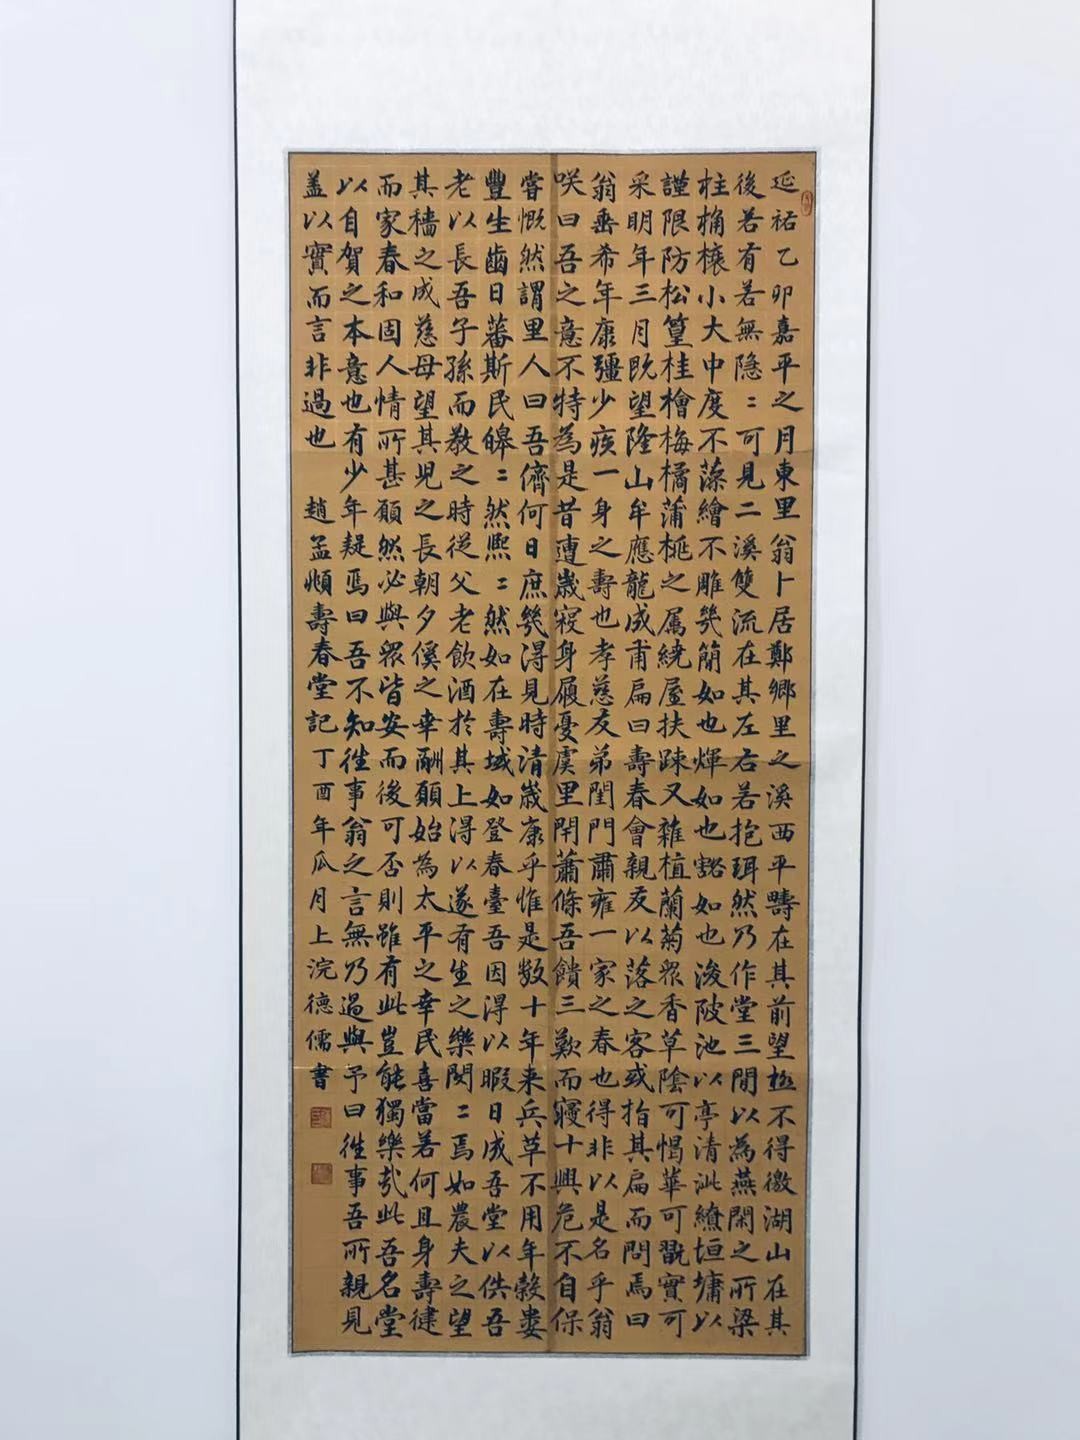 延祐乙卯嘉平之月東里翁卜居鄭鄉里之溪西平疇在其前望極不得徹湖山在其
後若有若無隱〻可見二溪雙流在其左右若抱珥然乃作堂三閒以為燕閑之所梁
柱桷榱小大中度不藻繪不雕幾簡如也煇如也豁如也浚陂池以亭清泚繚垣墉以
謹限防松篁桂檜梅橘蒲桃之属繞屋扶踈又雜植蘭菊衆香草陰可愒華可翫實可
采明年三月既望隆山牟應龍成甫扁曰壽春會親友以落之客或指其扁而問焉曰
翁垂希年康彊少疾一身之壽也孝慈友弟閨門肅雍一家之春也得非以是名乎翁
咲曰吾之意不特為是昔遭歲寖身履憂虞里閈蕭條吾饋三歎而寢十興危不自保
嘗慨然謂里人曰吾儕何日庶幾得見時清歲康乎惟是数十年来兵革不用年穀婁
豐生齒日蕃斯民皞〻然熙〻然如在壽域如登春臺吾因得以暇日成吾堂以供吾
老以長吾子孫而教之時從父老飲酒於其上得以遂有生之樂閔〻焉如農夫之望
其穡之成慈母望其児之長朝夕傒之幸酬願始為太平之幸民喜當若何且身壽徤
而家春和固人情所甚願然必與衆皆安而後可否則雖有此豈能獨樂哉此吾名堂
以自賀之本意也有少年疑焉曰吾不知徃事翁之言無乃過與予曰徃事吾所親見
盖以實而言非過也 趙孟頫壽春堂記丁酉年瓜月上浣德儒書